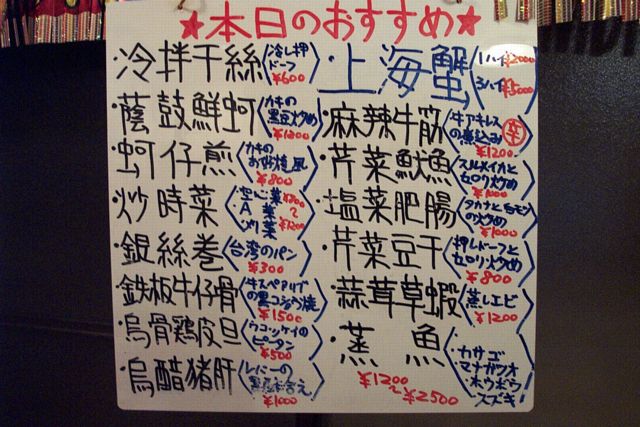 ★本日のおすすめ★
・冷拌干絲 冷し押ドーフ ¥600
・蔭鼓鮮蚵 カキの黒豆炒め ¥1200
・蚵仔煎 カキのお好焼風 ¥800
・炒時菜 空心菜 A菜 ¥1200
・銀絲巻 台湾のパン ¥300
・鉄板牛仔骨 牛スペアリブの黒コショウ焼 ¥1500
・烏骨鶏皮旦 ウコッケイのピータン ¥500
・烏醋猪肝 レバーの ¥1000
・上海蟹 1ハイ¥2000 3ハイ¥5000
・麻辣牛筋 牛アキレスの煮込み 辛 ¥1200
・芹菜魷魚 スルメイカとセロリ炒め ¥1000
・塩菜肥腸 タカナと白モツの炒め ¥1000
・芹菜豆干 押しドーフとセロリ炒め ¥800
・蒜茸草蝦 蒸しエビ ¥1200
・蒸魚 ・カサゴ マナガツオ ホウボウ スズキ!
¥1200~¥2500